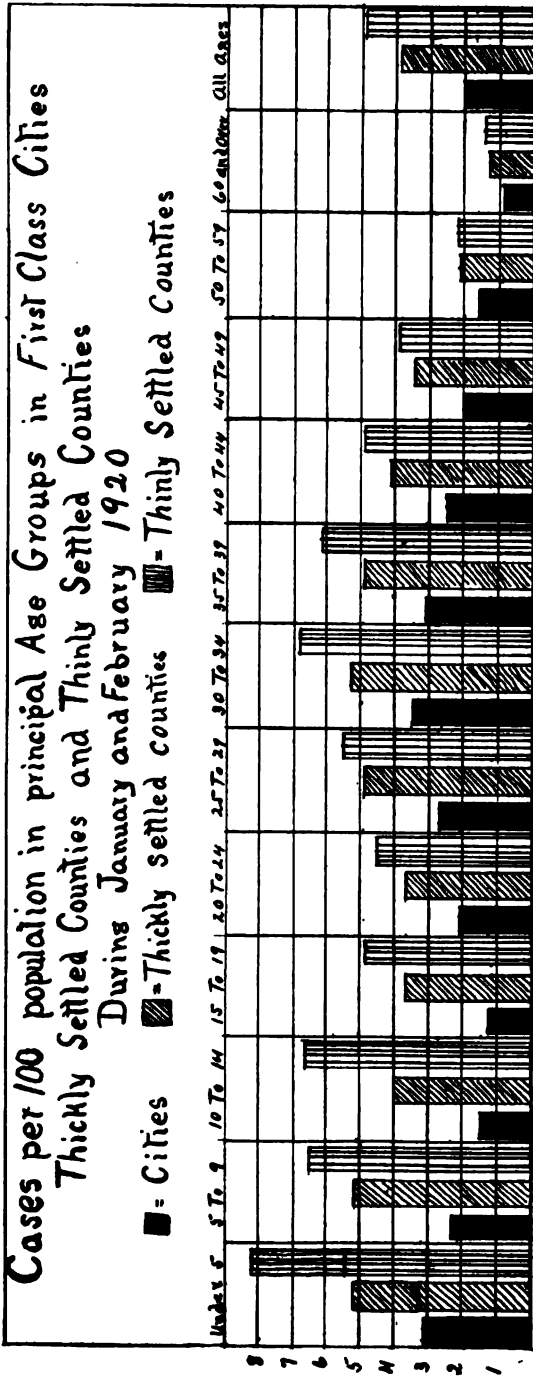 Cases per 100 population in principal Age Groups in First Class Cities
Thickly Settled Counties and Thinly Settled Counties
During January and February 1920
= Cities = Thickly settled counties = Thinly Settled Counties
Under 5 5 To 9 10 To 14 15 To 19 20 To 24 25 To 29 30 To 34 35 To 39 40 To 44 45 To 49 50 To 59 60 and Over All Ages
8
7
6
5
4
3
2
1